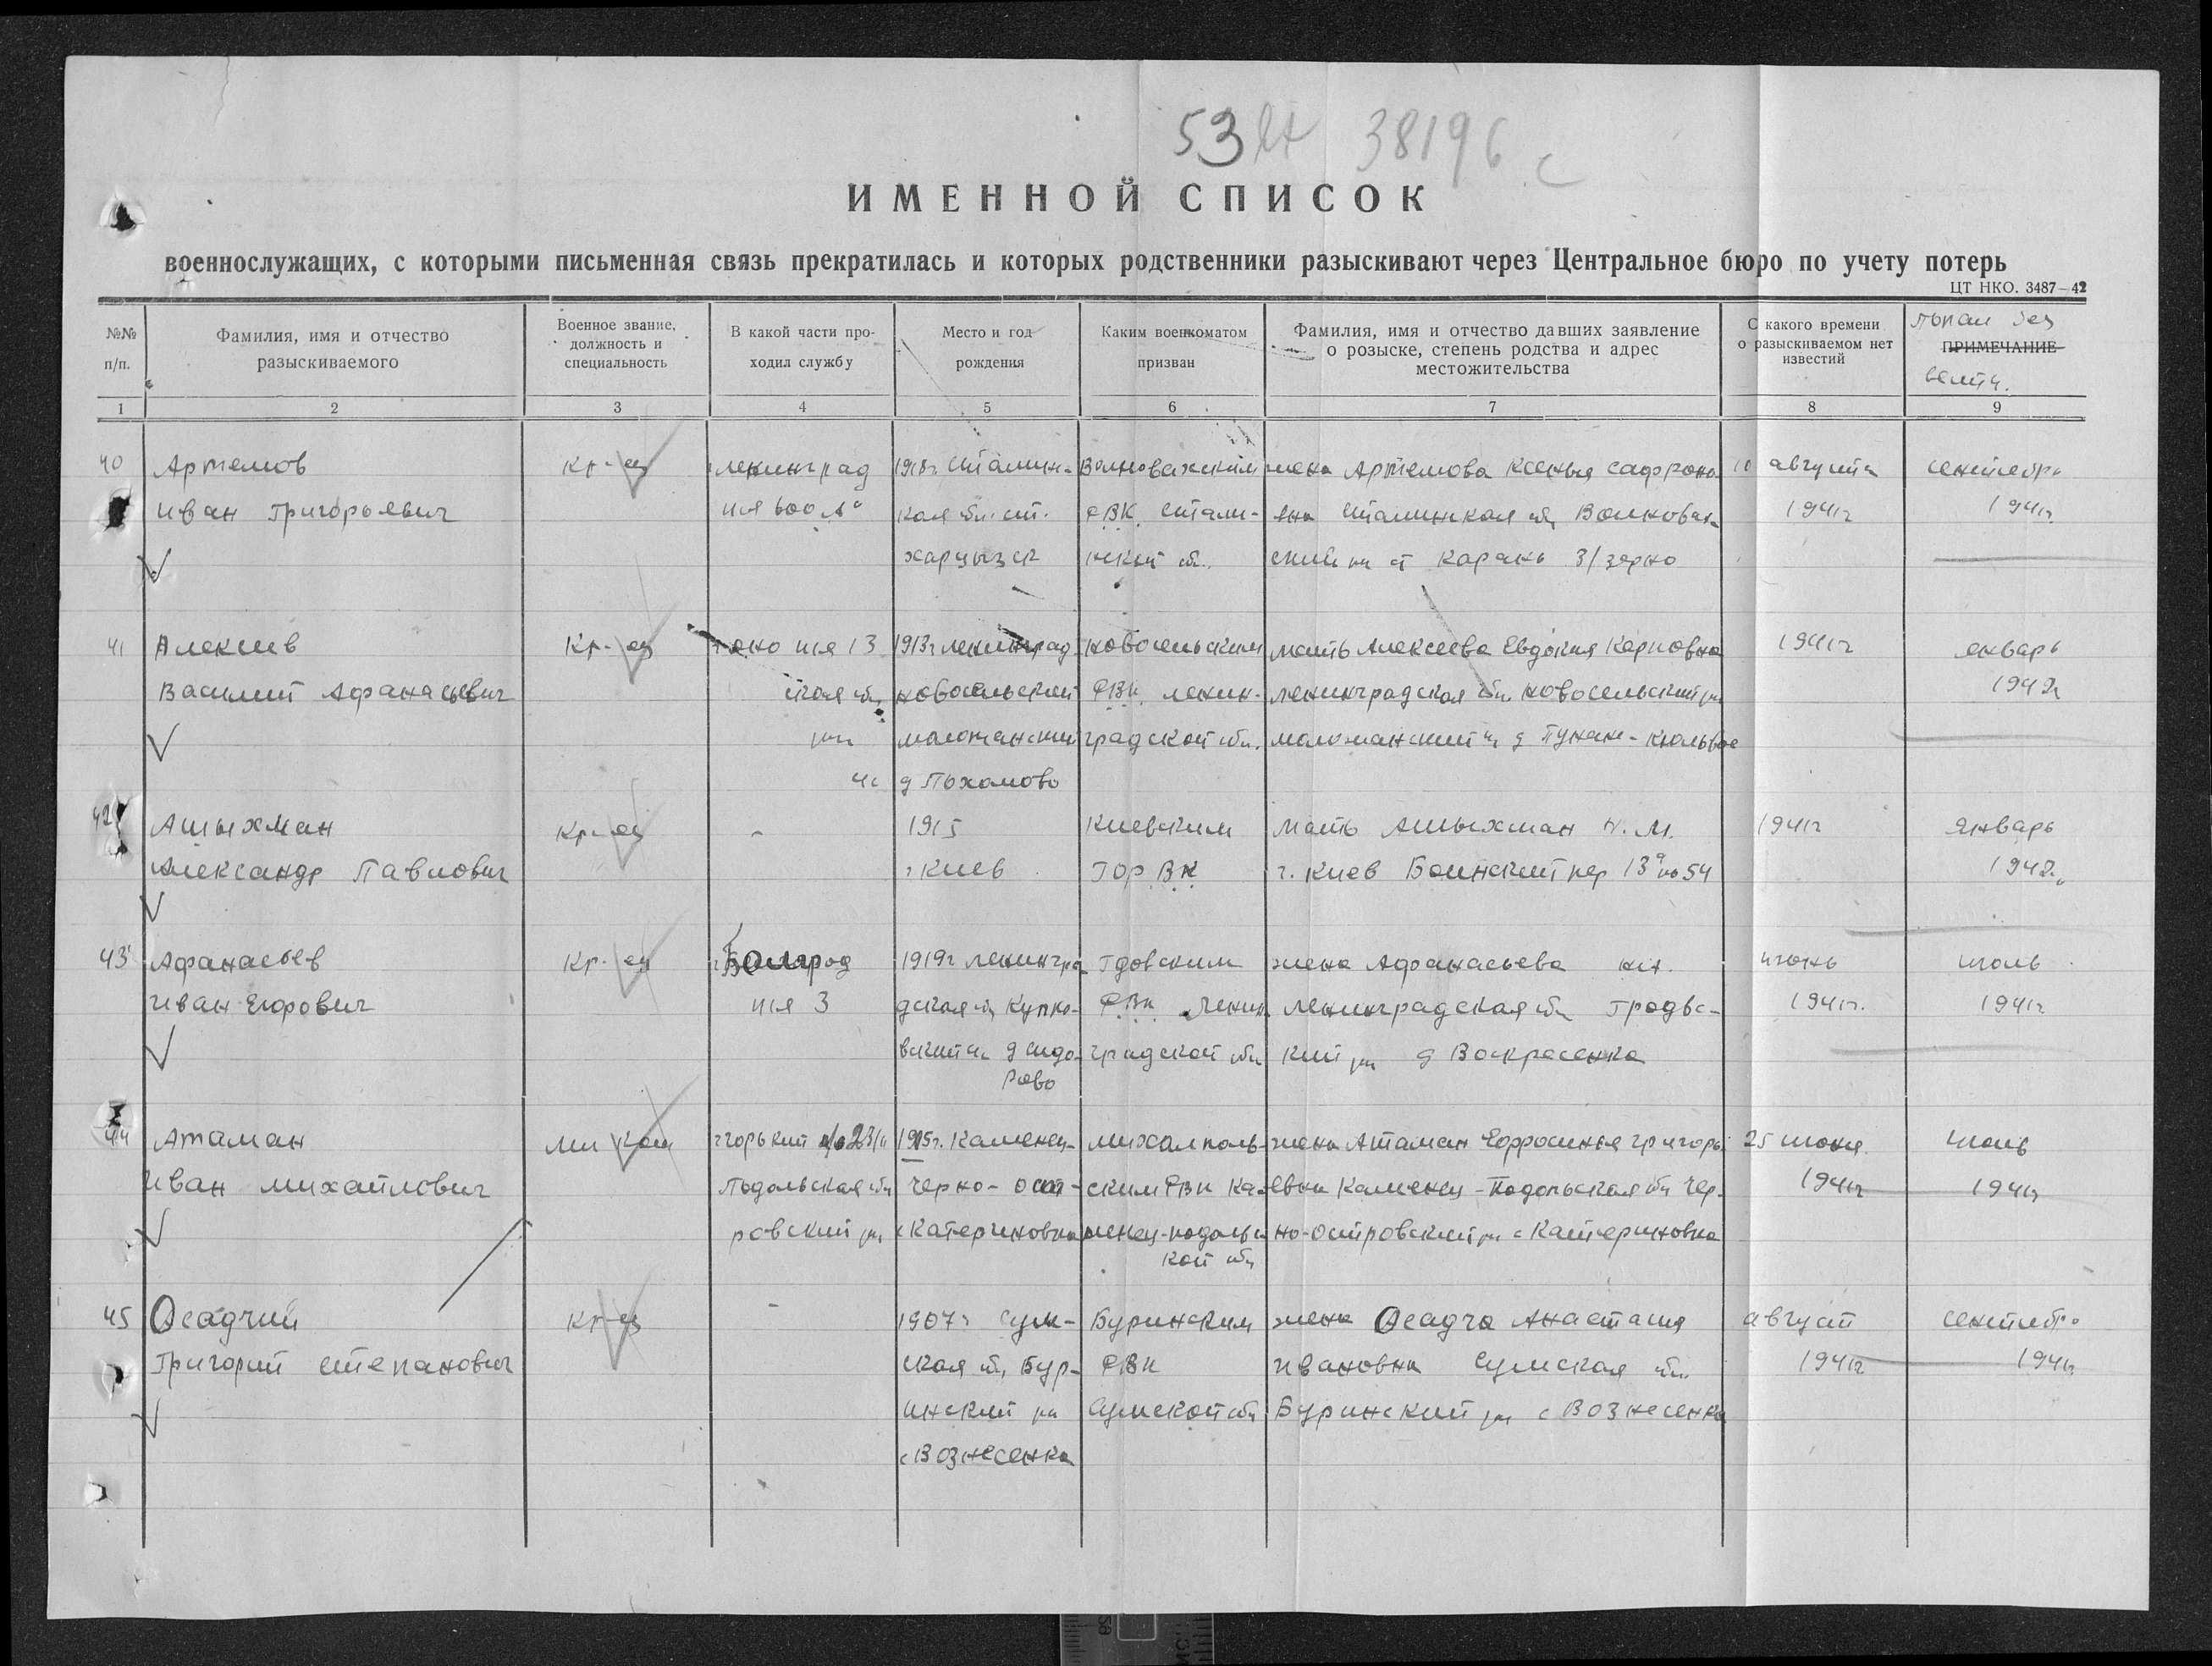 53 38196 с
ИМЕННОЙ СПИСОК
военнослужащих, с которыми письменная связь прекратилась и которых родственники разыскивают через Центральное бюро по учету потерь
ЦТ НКО. 3487—42
№№ п/п.
Фамилия, имя и отчество разыскиваемого
Военное звание, должность и специальность
В какой части проходил службу
Место и год рождения
Каким военкоматом призван
Фамилия, имя и отчество давших заявление о розыске, степень родства и адрес местожительства
С какого времени о разыскиваемом нет известий
Пропал без ПРИМЕЧАНИЕ вести.
1 2 3 4 5 6 7 8 9
40 Артемов Кр-ец Ленинград 1918г Сталин- Волновахским жена Артемова Ксенья Сафрона 10 августа сентябрь
Иван Григорьевич п/я 600 кая обл. ст. РВК Стали- Сталинская обл Волновах- 1941г 1941г
Харцызск нской обл. ский рн ст Карань З/зерно
41 Алексеев Кр-ец п/я 13 1913г Ленинград Новосельским мать Алексеева Евдокия Карповна 1941г январь
Василий Афанасьевич ская обл Новосельский РВК Ленин- Ленинградская обл Новосельский рн 1942г
рн градской обл.
д
42 Ашыхман Кр-ец - 1915 Киевским мать Ашыхман М. 1941г январь
Александр Павлович г Киев Гор ВК г. Киев Боинский пер 13 54 1942г
43 Афанасьев Кр-ец п/я 3 1919г Ленингра Гдовским жена Афанасьева июнь июль
Иван Егорович дская обл РВК Ленин Ленинградская обл Гродвс- 1941г. 1941г
д Сидо- градской обл кий рн д Воскресенка
рово
44 Атаман г Горький п/о 1915г. Каменец- Михалполь- жена Атаман Ефросинья Григорь 25 июня июль
Иван Михайлович Подольская обл Черно-Ост- ским РВК Ка- евна Каменец-Подольская обл Чер- 1941г 1941г
ровский рн с Катериновка менец-подольс но-Островский рн с Катериновка
кой обл
45 Осадчий Кр-ец - 1907г Сум- Буринским жена Осадча Анастасия август сентябрь
Григорий Степанович ская обл, Бур- РВК Ивановна Сумская обл. 1941г 1941г
инский рн Сумской обл Буринский рн с Вознесенка
с Вознесенка